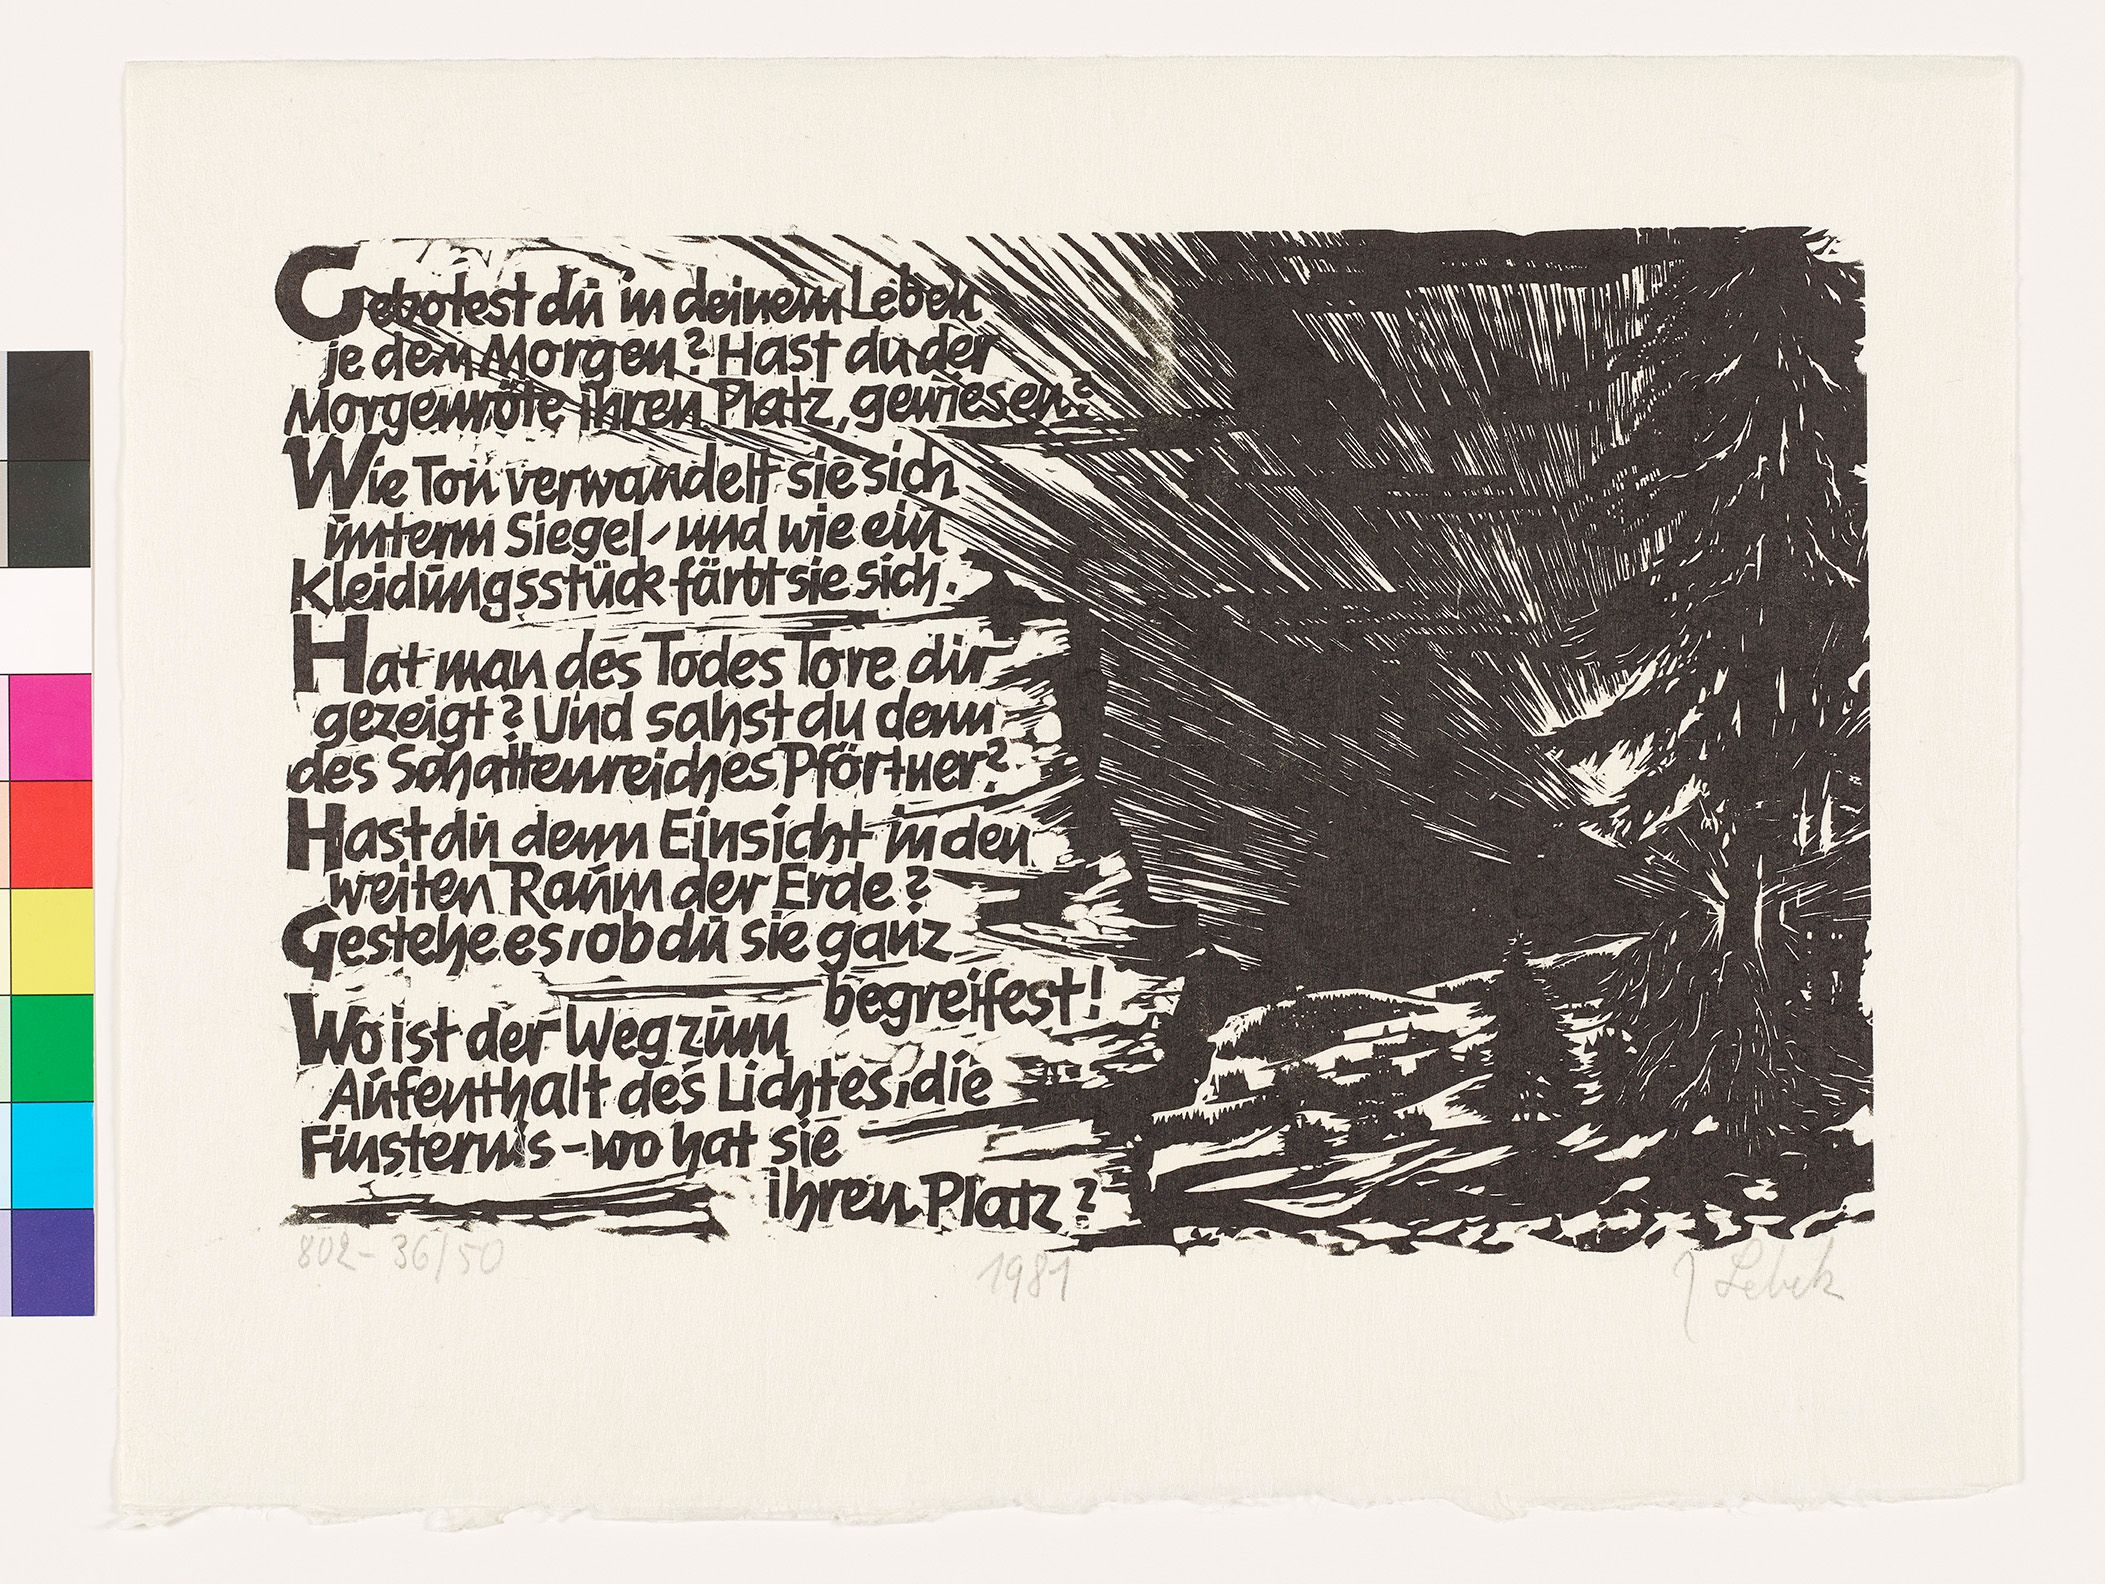 Gebotest du in deinem Leben
je dem Morgen? Hast du der
Morgenröte ihren Platz, gewiesen?
Wie Ton verwandelt sie sich
unterm Siegel, und wie ein
Kleidungsstück färbt sie sich.
Hat man des Todes Tore dir
gezeigt? Und sahst du denn
des Schattenreiches Pförtner?
Hast du denn Einsicht in den
weiten Raum der Erde?
Gestehe es, ob du sie ganz
begreifest!
Wo ist der Weg zum
Aufenthalt des Lichtes, die
Finsternis - wo hat sie
ihren Platz?
802- 36/50 1981 J Lebek